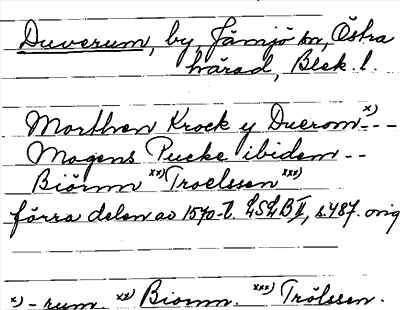 Duverum, by, Jämjö sn, Östra
härad, Blek. l.
Morthen Krock y Duerom x)--
Mogens Pucke ibidem --
Biörnn xx) Troelssen xxx)
förra delen av 1570-t. LSLB II, s. 487. orig
x) -rum. xx) Bionn. xxx) Trölssen.